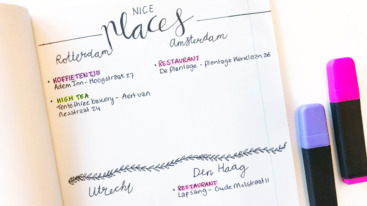 NICE
Places
Rotterdam
• KOFFIETENTJE
Ademzon - Hoogstraat 27
• HIGH TEA
bakery - Aert van
Nesstraat 24
Amsterdam
• RESTAURANT
De Plantage - Plantage Kerklaan 36
Utrecht
Den Haag
• RESTAURANT
Lapsang - Oude Molstraat 11